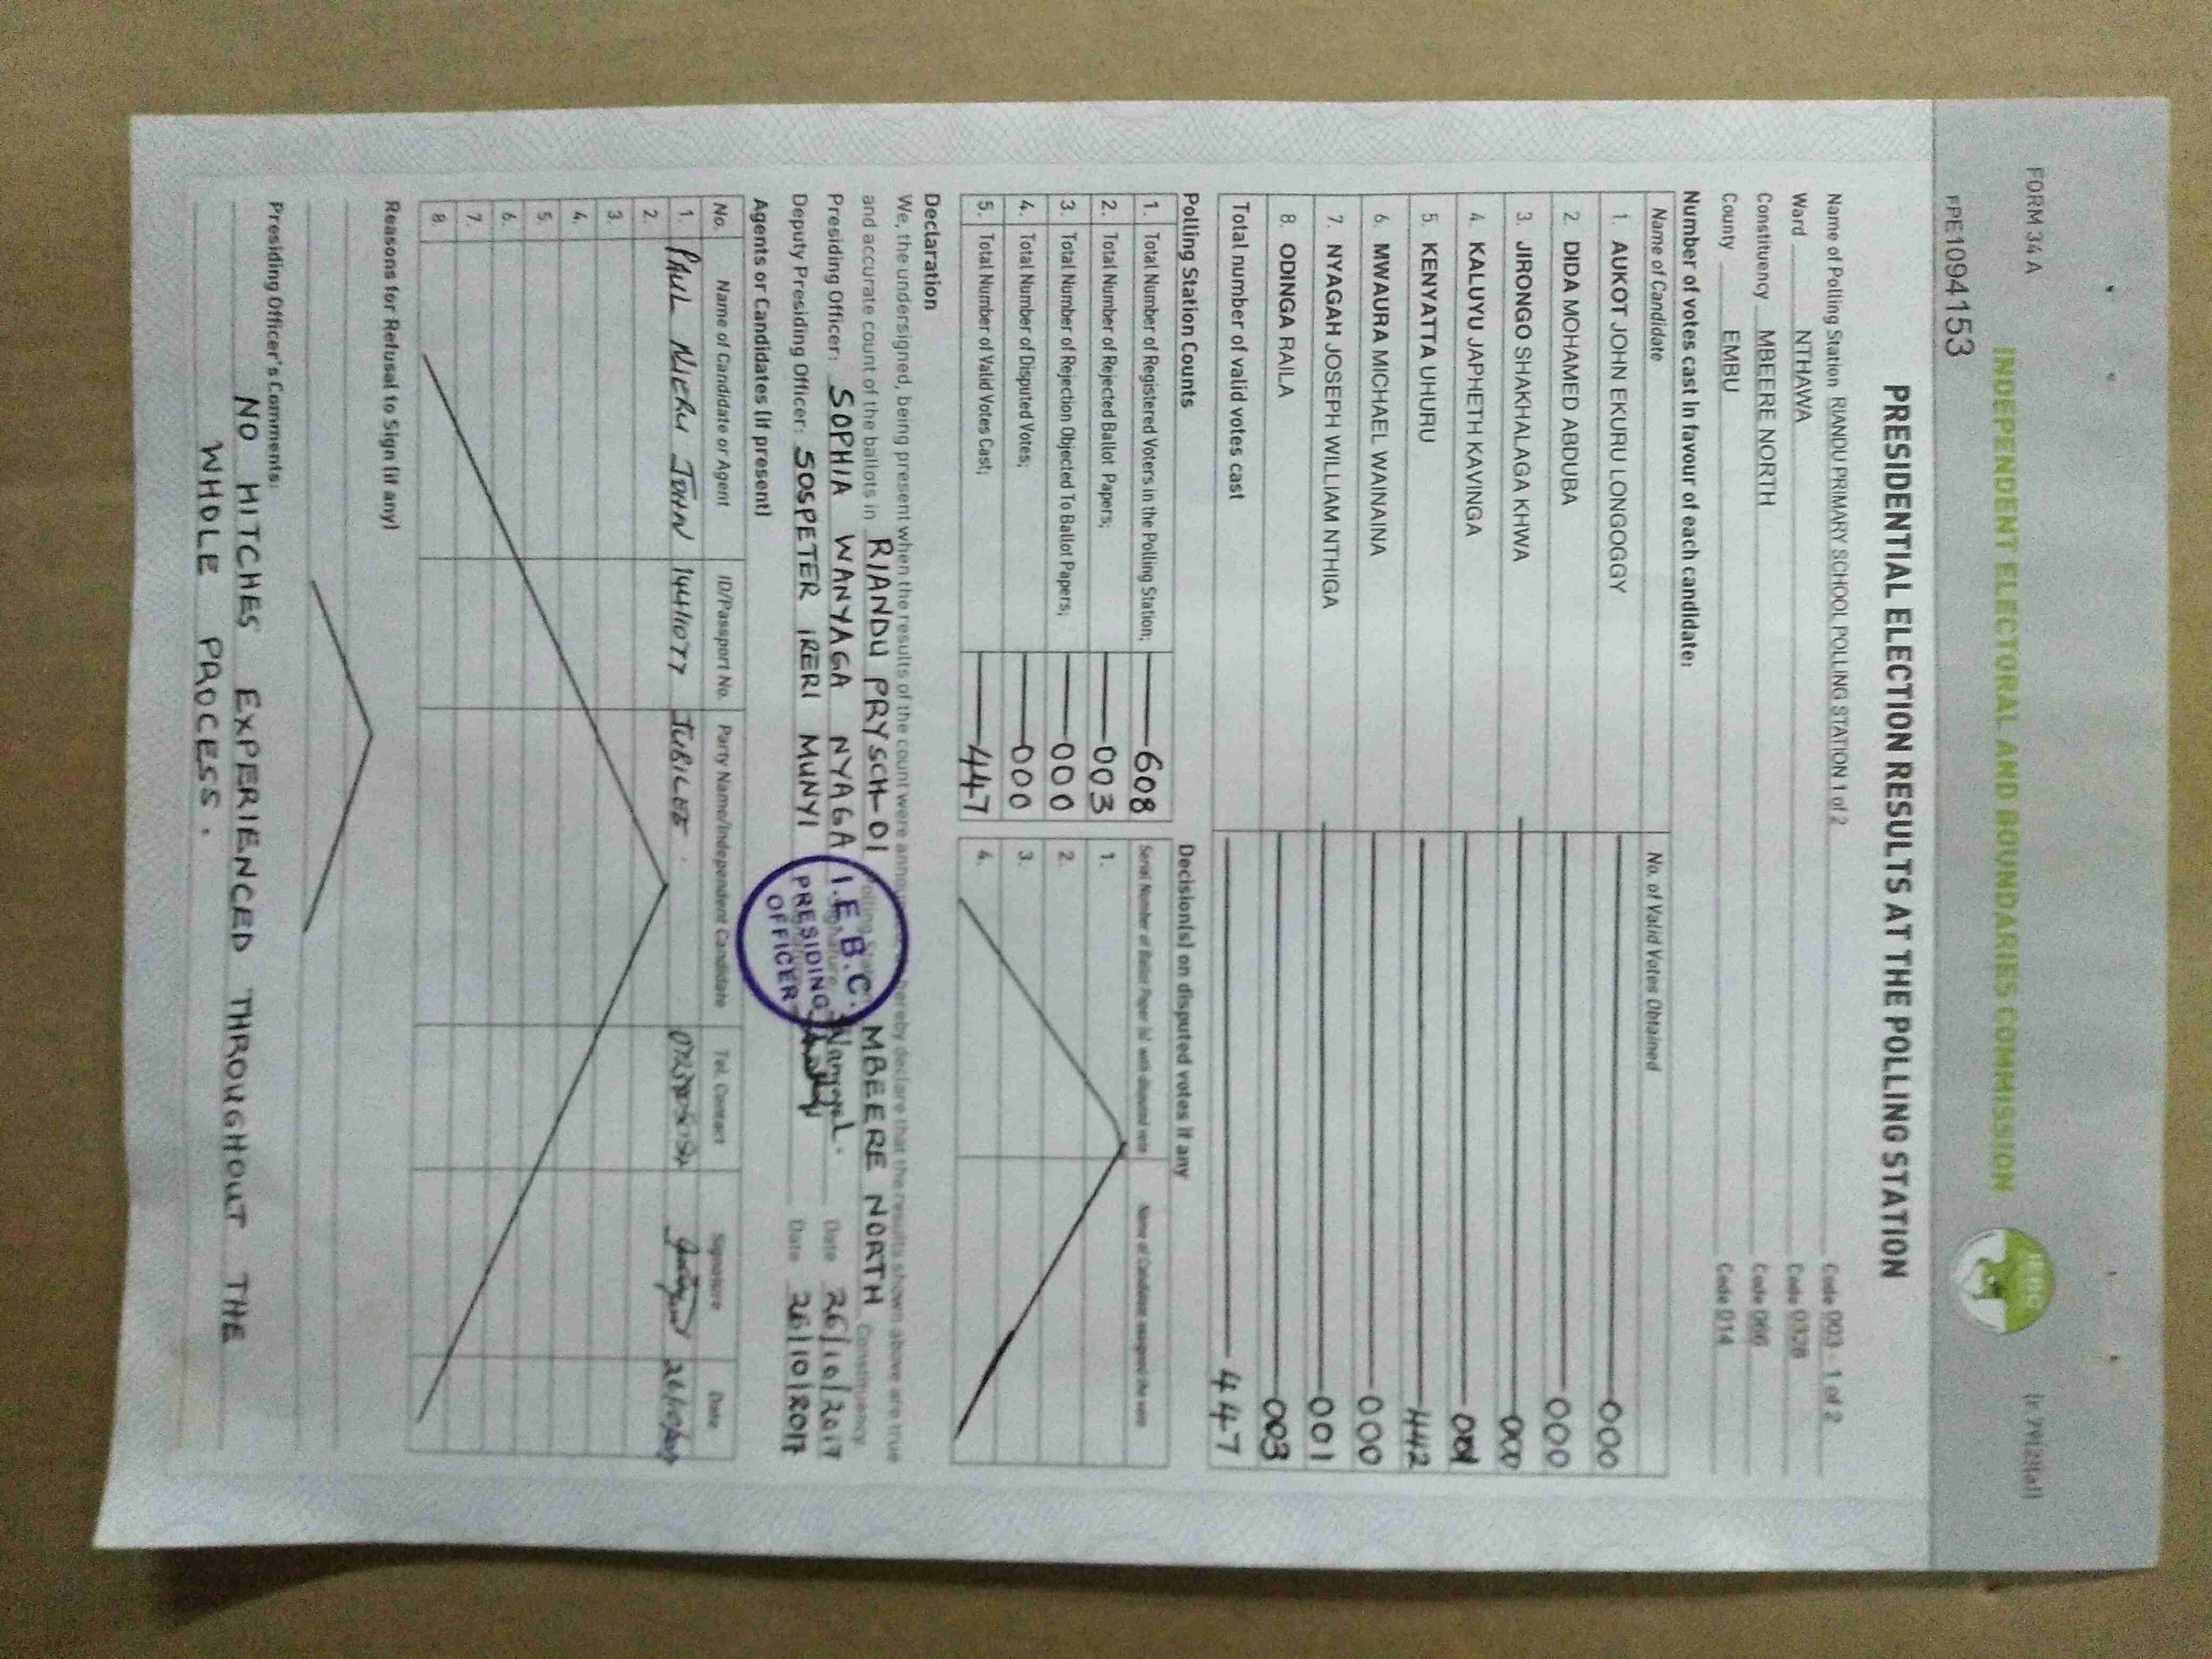 FORM 34 A
INDEPENDENT ELECTORAL AND BOUNDARIES COMMISSION
IEBC
(r. 79(2)(a))
PPE1094153
PRESIDENTIAL ELECTION RESULTS AT THE POLLING STATION
Name of Polling Station RIANDU PRIMARY SCHOOL POLLING STATION 1 of 2 Code 003 - 1 of 2
Ward NTHAWA Code 0328
Constituency MBEERE NORTH Code 066
County EMBU Code 014
Number of votes cast in favour of each candidate:
Name of Candidate No. of Valid Votes Obtained
1. AUKOT JOHN EKURU LONGOGGY 000
2. DIDA MOHAMED ABDUBA 000
3. JIRONGO SHAKHALAGA KHWA 000
4. KALUYU JAPHETH KAVINGA 001
5. KENYATTA UHURU 442
6. MWAURA MICHAEL WAINAINA 000
7. NYAGAH JOSEPH WILLIAM NTHIGA 001
8. ODINGA RAILA 003
Total number of valid votes cast 447
Polling Station Counts
1. Total Number of Registered Voters in the Polling Station; 608
2. Total Number of Rejected Ballot Papers; 003
3. Total Number of Rejection Objected To Ballot Papers; 000
4. Total Number of Disputed Votes; 000
5. Total Number of Valid Votes Cast; 447
Decision(s) on disputed votes if any
Serial Number of Ballot Paper (s) with disputed vote Name of Candidate assigned the vote
1.
2.
3.
4.
Declaration
We, the undersigned, being present when the results of the count were announced, hereby declare that the results shown above are true
and accurate count of the ballots in RIANDU PRY SCH-01 Polling Station MBEERE NORTH Constituency
Presiding Officer: SOPHIA WANYAGA NYAGA Signature Date 26/10/2017
Deputy Presiding Officer: SOSPETER IRERI MUNYI Date 26/10/2017
I.E.B.C.
PRESIDING
OFFICER
Agents or Candidates (if present)
No. Name of Candidate or Agent ID/Passport No. Party Name/Independent Candidate Tel. Contact Signature Date
1. PAUL NJERU JOHN 14411077 JUBILEE.
2.
3.
4.
5.
6.
7.
8.
Reasons for Refusal to Sign (if any)
Presiding Officer's Comments:
NO HITCHES EXPERIENCED THROUGHOUT THE
WHOLE PROCESS.